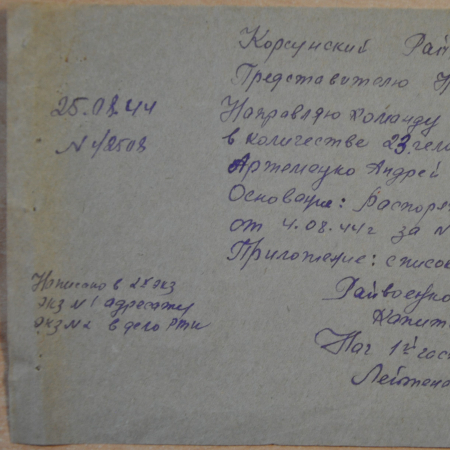 Корсунский Рай
Представителю
25.08.44
Направляю команду
N 4/2508
в количестве 23 чел
Артемоцко Андрей
Основация: Распоря
от 4.08.44 г за N
Приложение: список
Написано в 2х экз
экз N 1 адресату
экз N 2 в дело РТК
Райвоенко
Капит
Нач 1й час
Лейтена